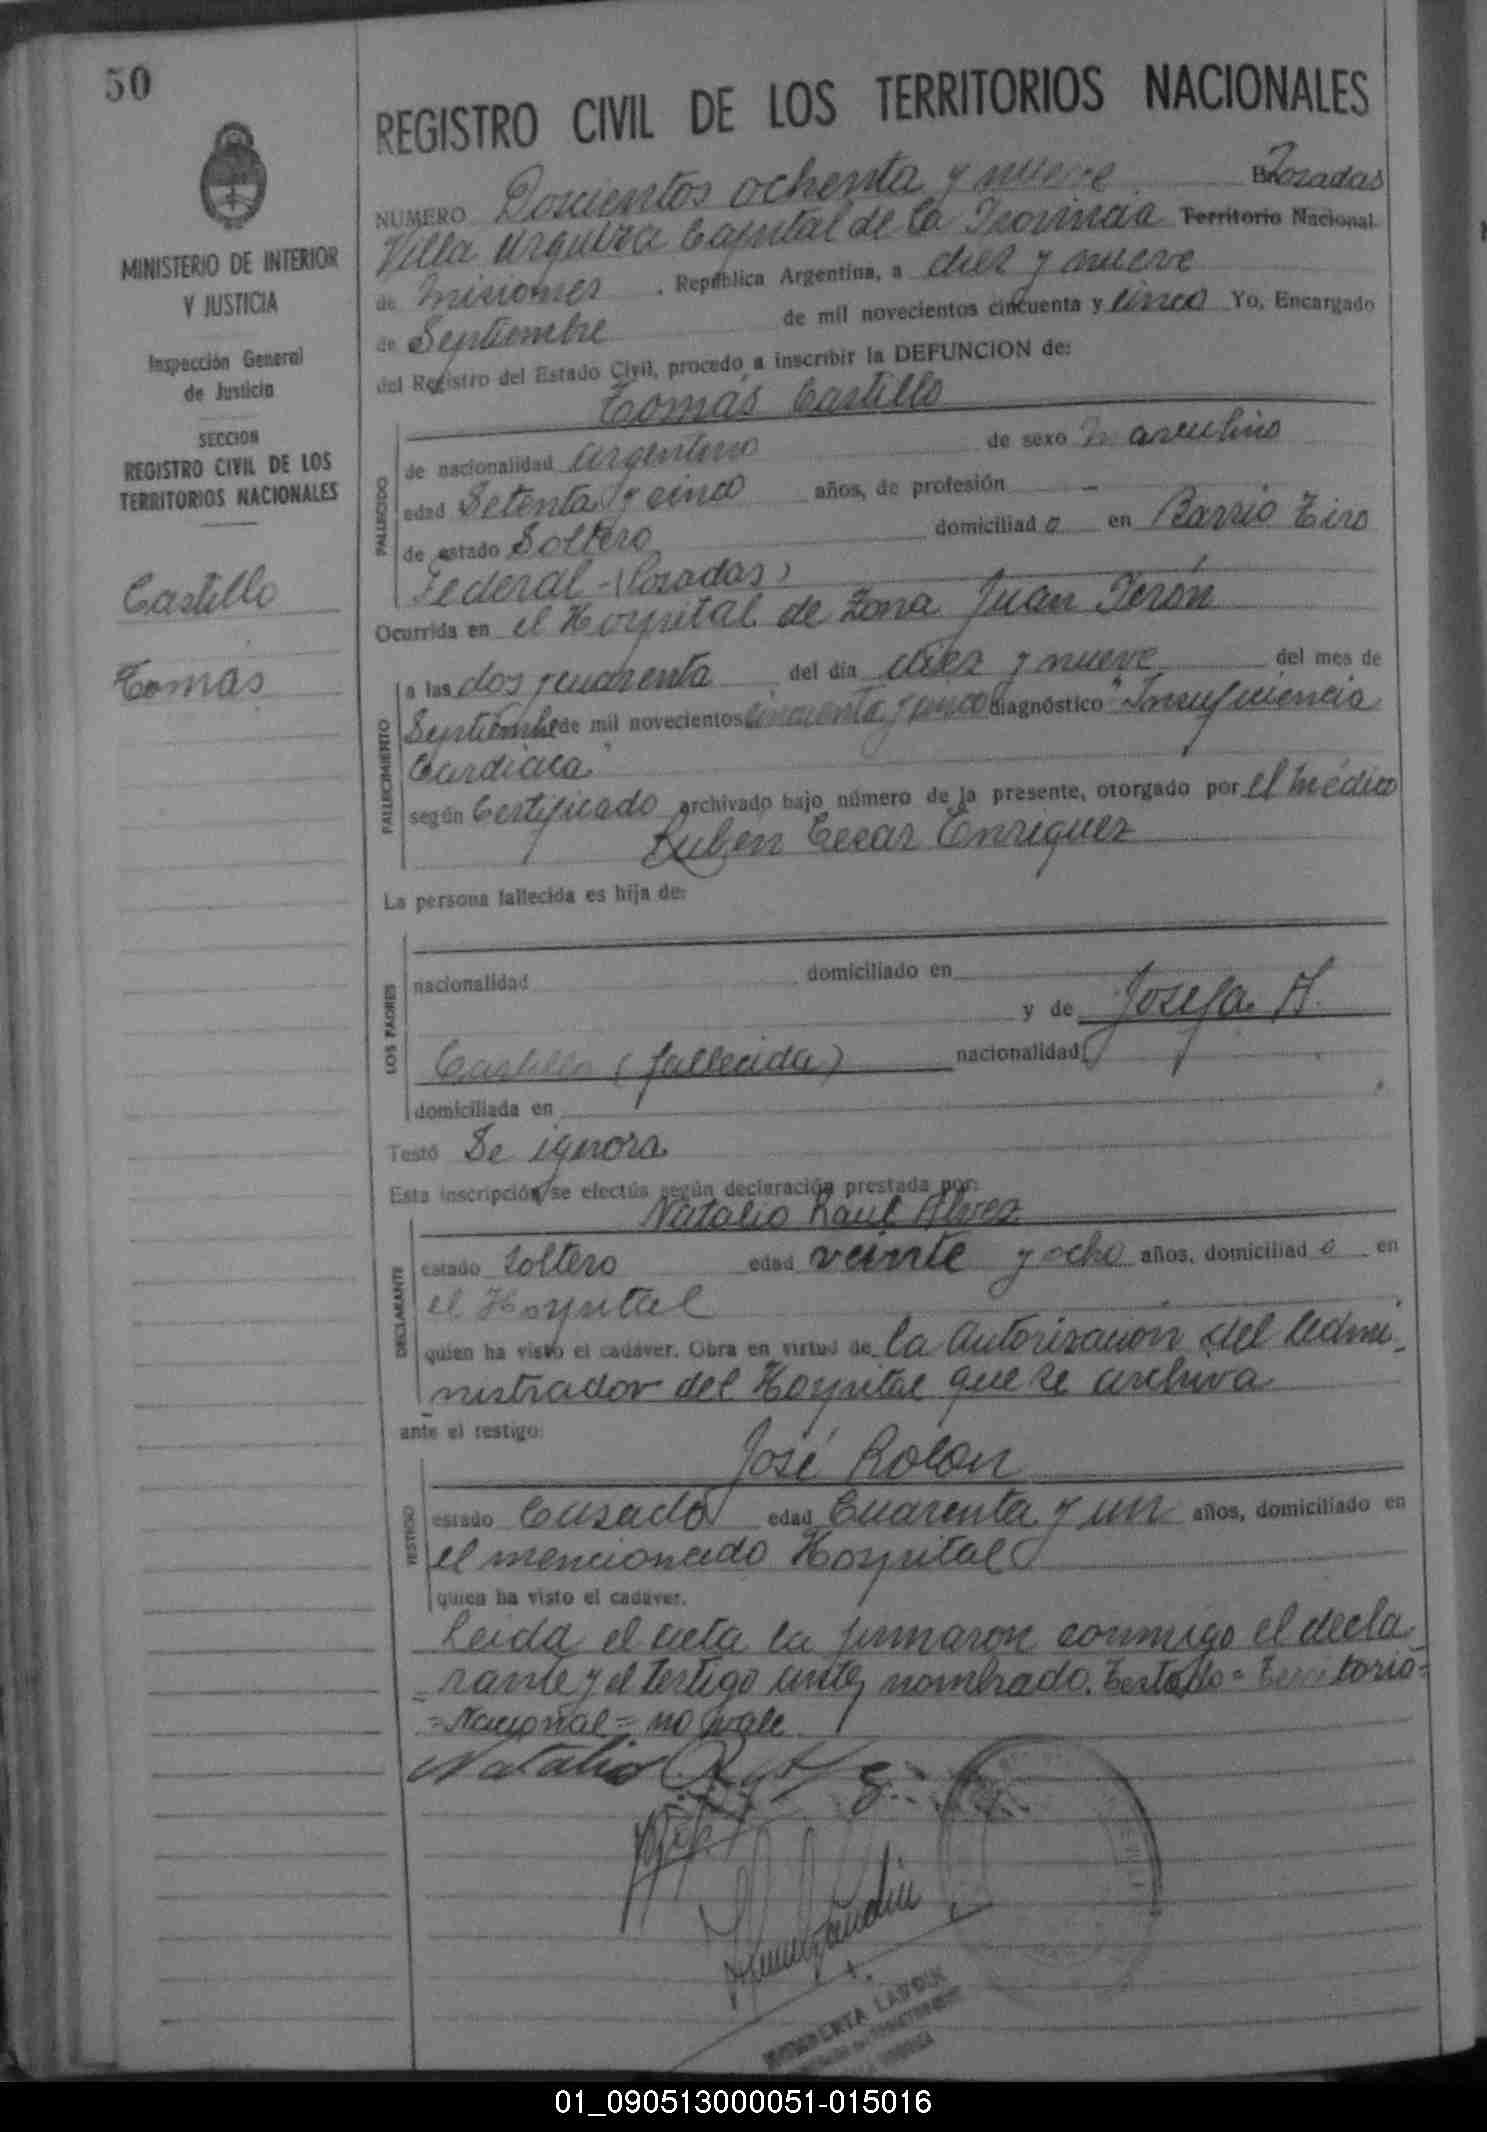 50
REGISTRO CIVIL DE LOS TERRITORIOS NACIONALES
MINISTERIO DE INTERIOR
Y JUSTICIA
Inspección General
de Justicia
SECCION
REGISTRO CIVIL DE LOS
TERRITORIOS NACIONALES
Castillo
Tomás
NUMERO Doscientos ochenta y nueve Posadas
Villa Urquiza Capital de la Provincia Territorio Nacional
de Misiones, República Argentina, a diez y nueve
de Septiembre de mil novecientos cincuenta y cinco Yo, Encargado
del Registro del Estado Civil, procedo a inscribir la DEFUNCION de:
Tomás Castillo
FALLECIDO
de nacionalidad argentino de sexo Masculino
edad Setenta y cinco años, de profesión -
de estado Soltero domiciliado en Barrio Tiro
Federal - (Posadas)
Ocurrida en el Hospital de Zona Juan Perón
FALLECIMIENTO
a las dos y cuarenta del día diez y nueve del mes de
Septiembre de mil novecientos cincuenta y cinco diagnóstico "Insuficiencia
Cardiaca"
según Certificado archivado bajo número de la presente, otorgado por el médico
Ruben Cesar Enriquez
La persona fallecida es hija de:
LOS PADRES
nacionalidad domiciliado en
y de Josefa A.
Castillo (fallecida) nacionalidad
domiciliada en
Testó Se ignora
Esta inscripción se efectús según declaración prestada por:
Natalio Raul Alvez
DECLARANTE
estado Soltero edad veinte y ocho años, domiciliado en
el Hospital
quien ha visto el cadáver. Obra en virtud de la autorización del Admi-
nistrador del Hospital que se archiva
ante el testigo:
José Rolon
TESTIGO
estado Casado edad Cuarenta y un años, domiciliado en
el mencionado Hospital
quien ha visto el cadáver.
Leida el acta la firmaron conmigo el decla-
rante y el testigo antes nombrado. Testado = Territorio =
= Nacional = no vale
Natalio R
01_090513000051-015016